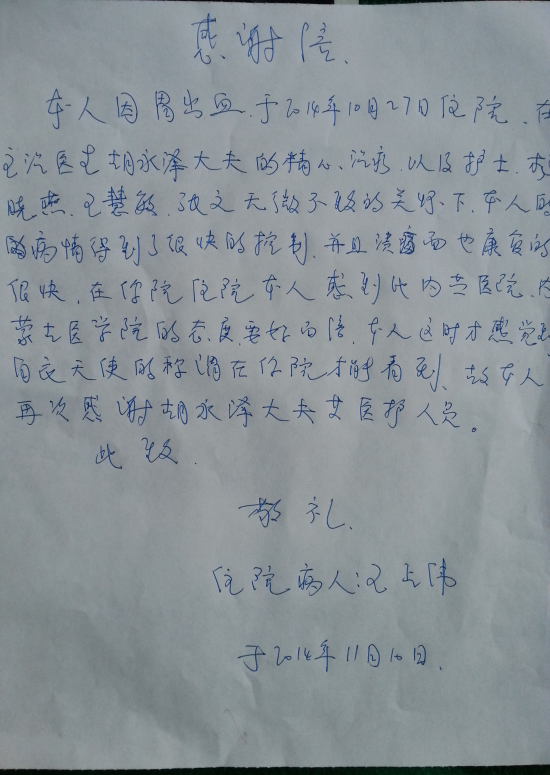 感谢信.
本人因胃出血.于2014年10月27日住院.在
主治医生胡永泽大夫的精心.治疗.以及护士.
晓燕.王慧敏.张文无微不致的关怀下.本人的
胃病情得到了很快的控制.并且溃疡面也康复的
很快.在你院住院本人感到比内蒙医院.内
蒙古医学院的态度要好百倍.本人这时才感觉到
白衣天使的称谓在你院才能看到.故本人
再次感谢胡永泽大夫及医护人员。
此致.
敬礼.
住院病人:王占伟
于2014年11月10日.